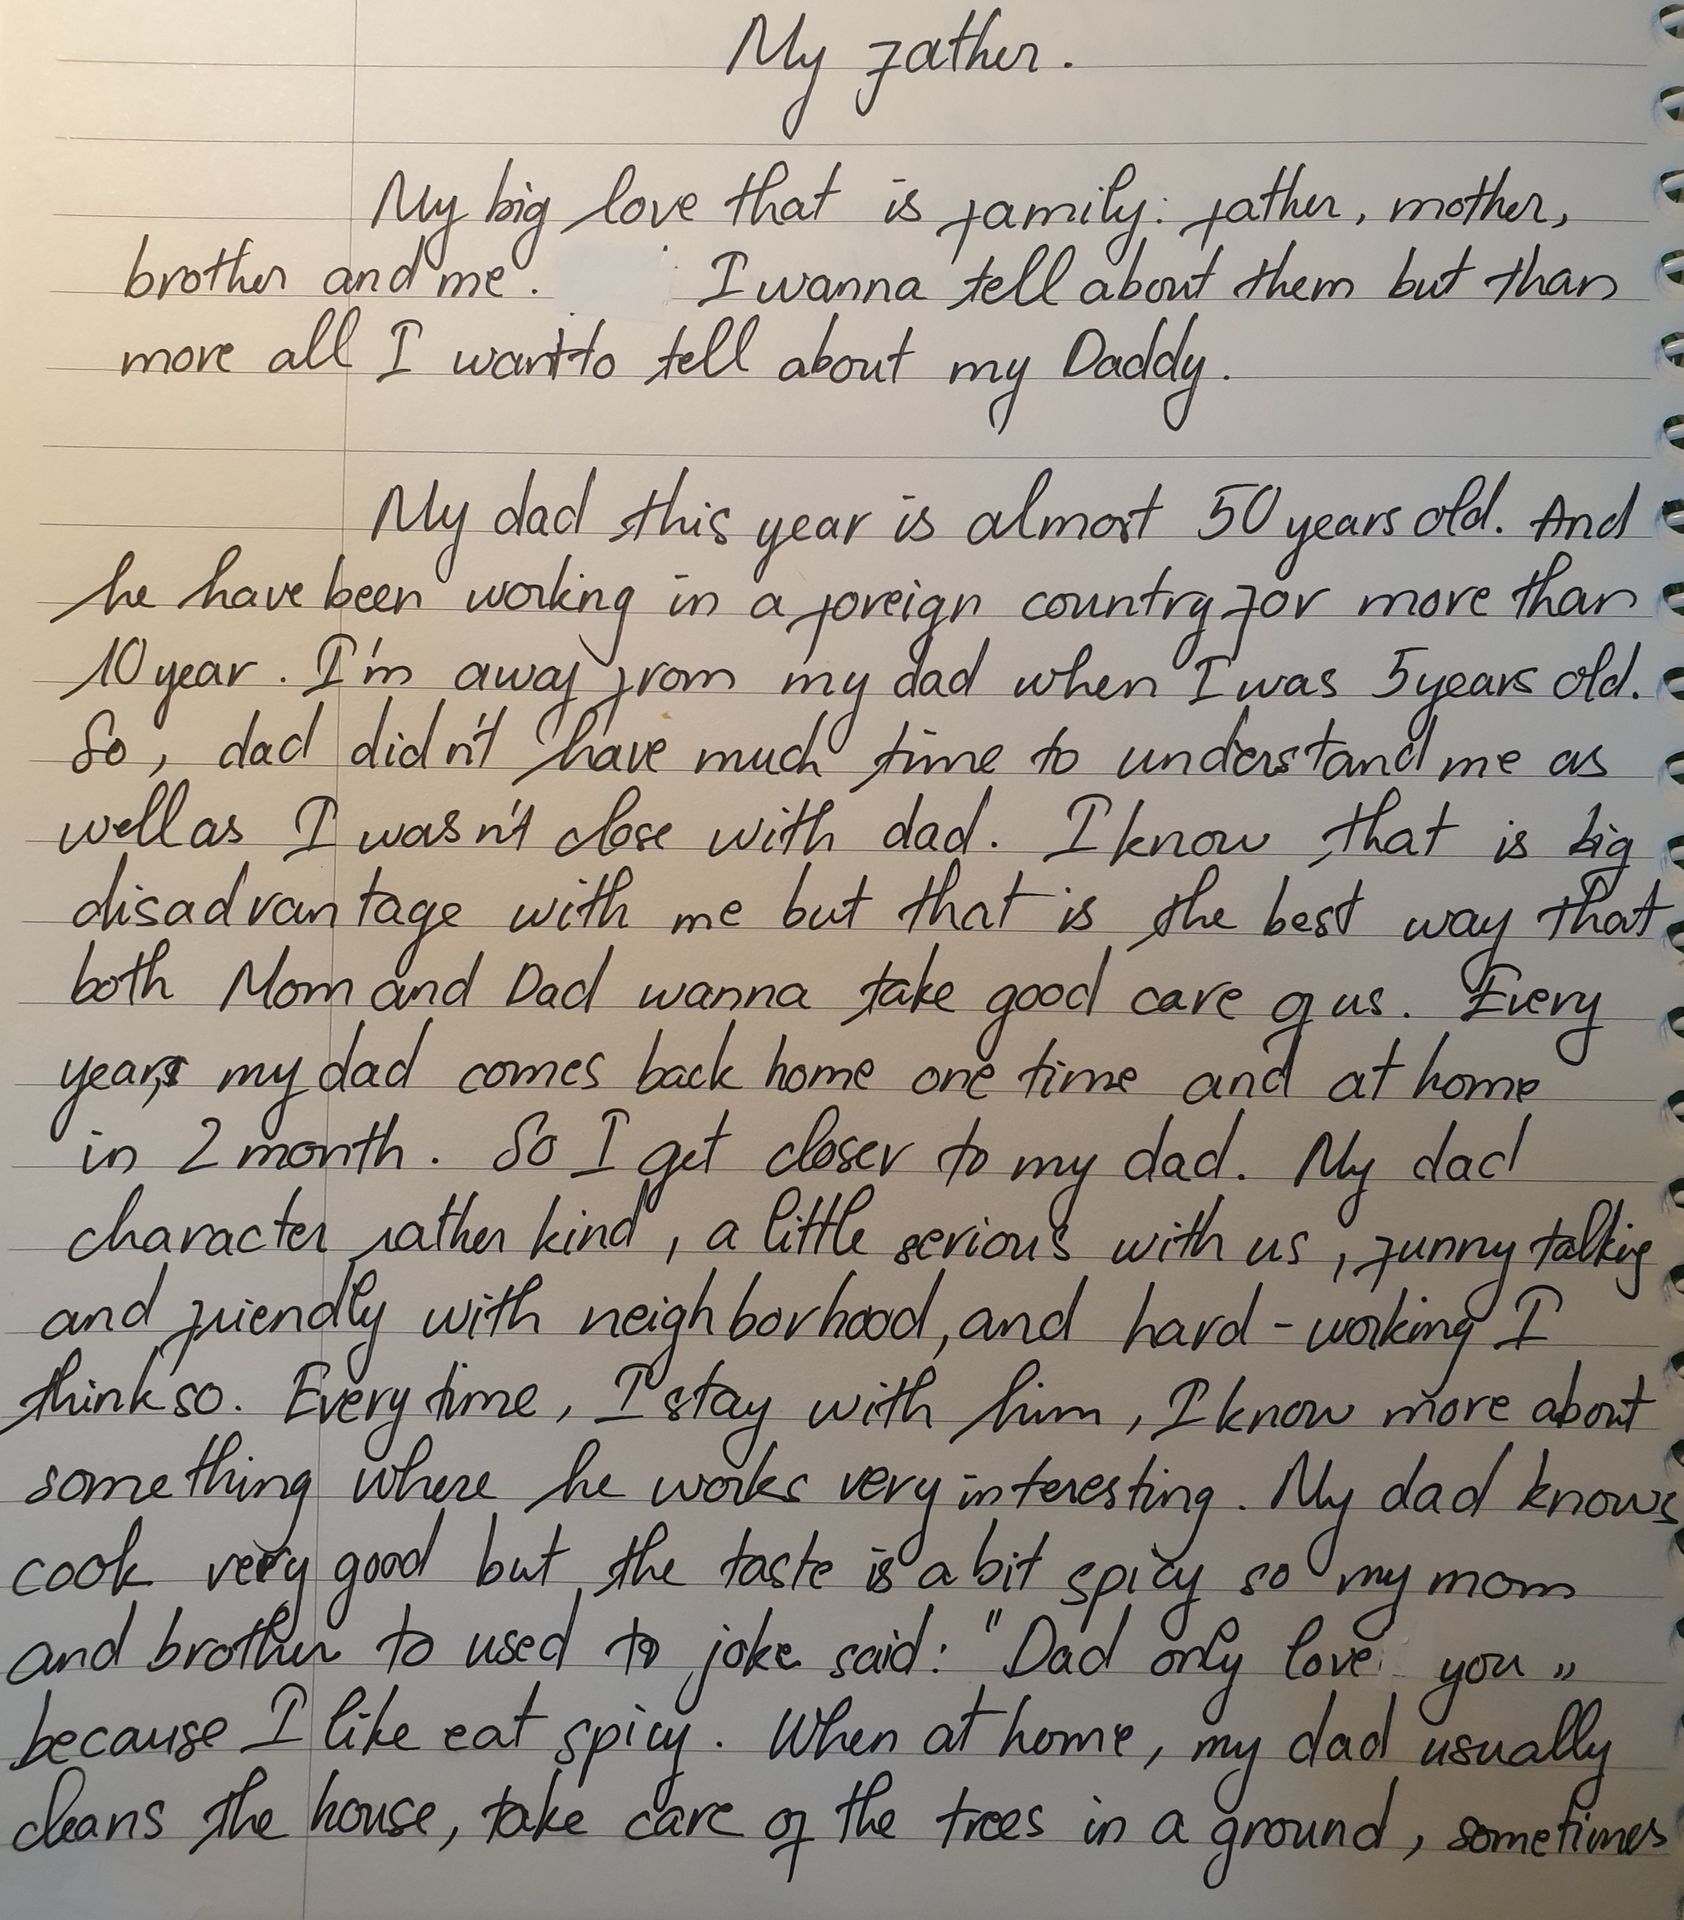 My father.
My big love that is family: father, mother,
brother and me. I wanna tell about them but than
more all I want to tell about my Daddy.
My dad this year is almost 50 years old. And
he have been working in a foreign country for more than
10 year. I'm away from my dad when I was 5 years old.
So, dad didn't have much time to understand me as
well as I wasn't close with dad. I know that is big
disadvantage with me but that is the best way that
both Mom and Dad wanna take good care of us. Every
years my dad comes back home one time and at home
in 2 month. So I get closer to my dad. My dad
character rather kind, a little serious with us, funny talking
and friendly with neighborhood, and hard-working I
think so. Every time, I stay with him, I know more about
something where he works very interesting. My dad knows
cook very good but the taste is a bit spicy so my mom
and brother to used to joke said: "Dad only love you"
because I like eat spicy. When at home, my dad usually
cleans the house, take care of the trees in a ground, sometimes